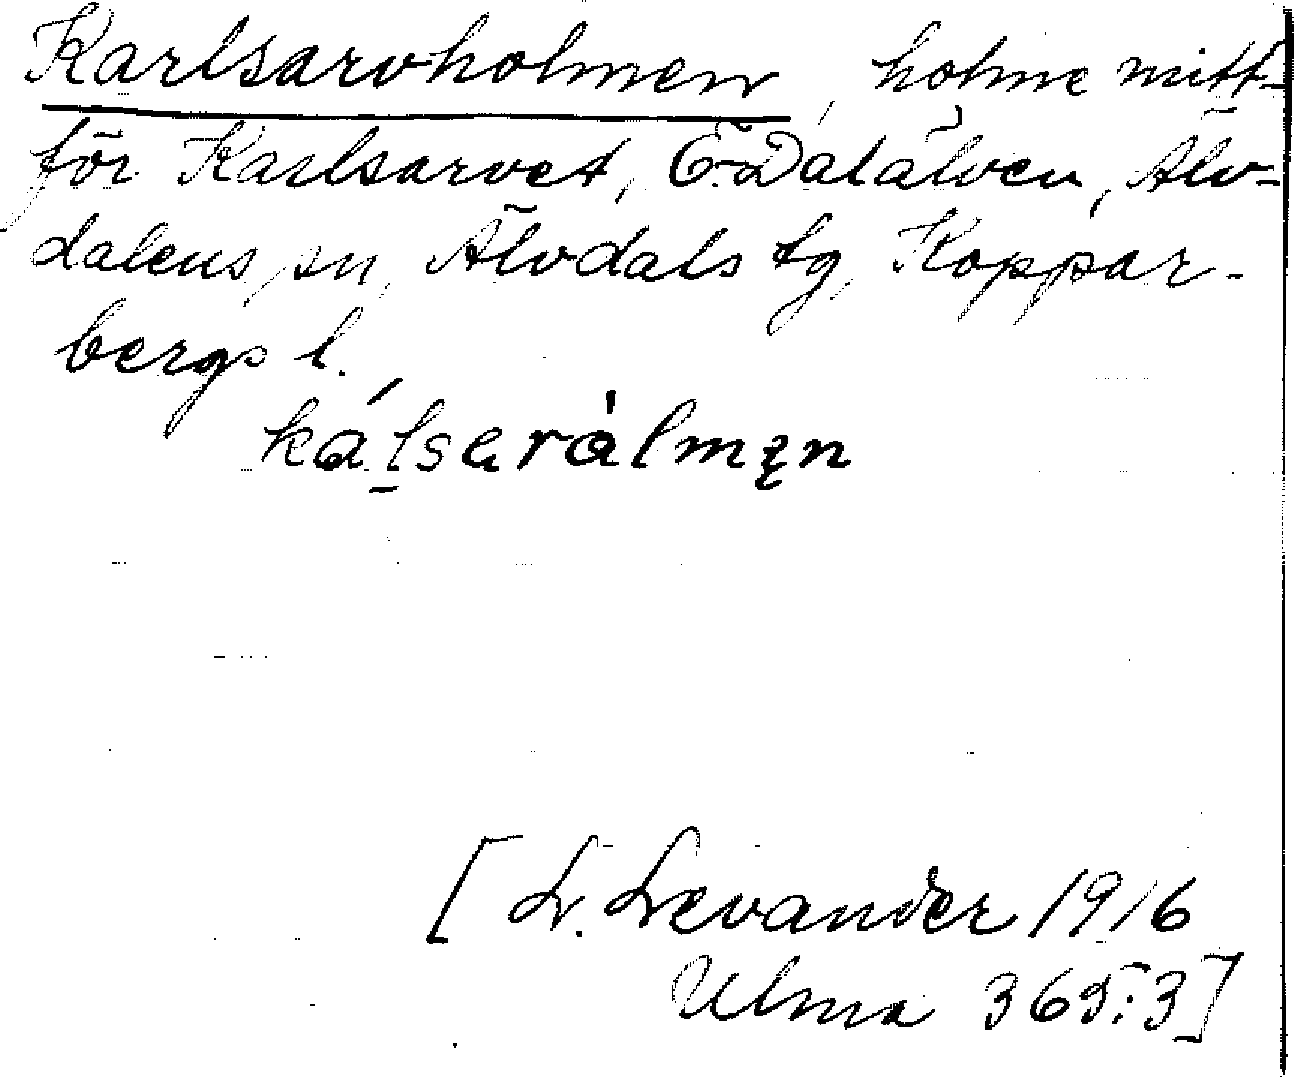 Karlsarvholmen, holme mitt-
för Karlsarvet, Ö. Dalälven, Älv-
dalens sn, Älvdals tg, Koppar-
bergs l.
kálsaràlmęn
[L. Levander 1916
Ulma 365:3]